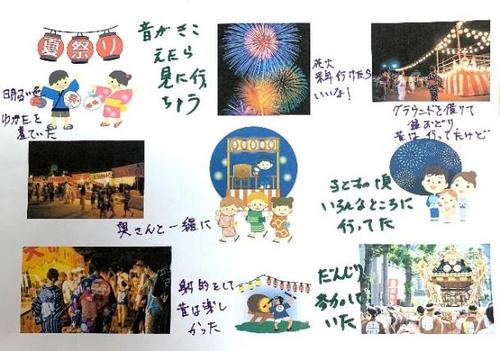 夏祭り
音がきこ
えたら
見に行
ちゃう
花火
来年行けたら
いいな！
グラウンドを借りて
盆おどり
昔は行ってたけど
明るい
ゆかたを
着ていた
祭
奥さんと一緒に
子どもの頃
いろんなところに
行ってた
射的をして
昔は楽し
かった
だんじり
参加して
いた